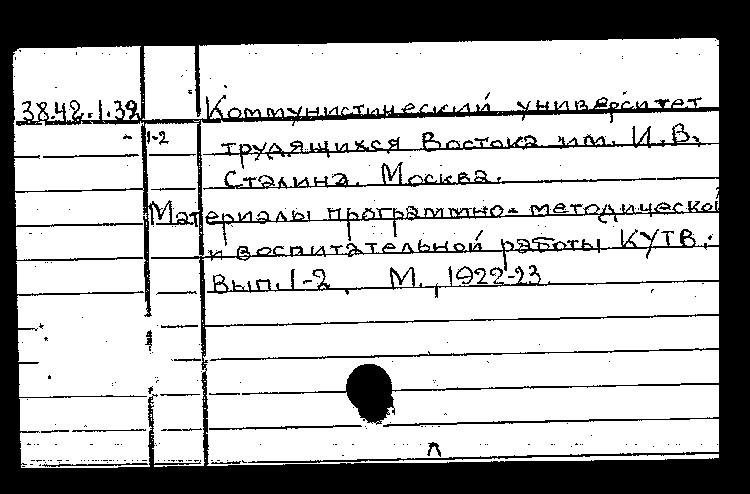 38.42.1.39 Коммунистический университет
- 1-2 трудящихся Востока им. И.В.
Сталина. Москва.
Материалы программно-методической
и воспитательной работы КУТВ.
Вып. 1-2. М., 1922-23.